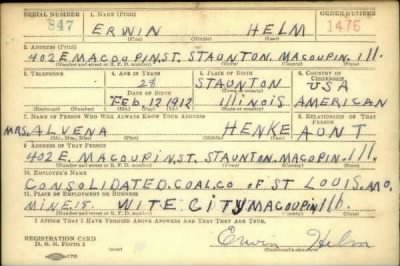 SERIAL NUMBER 1. NAME (Print) ORDER NUMBER
847 ERWIN HELM 1476
(First) (Middle) (Last)
2. ADDRESS (Print)
402 E MACOUPIN, ST. STAUNTON, MACOUPIN. Ill.
(Number and street or R. F. D. number) (Town) (County) (State)
3. TELEPHONE 4. AGE IN YEARS 5. PLACE OF BIRTH 6. COUNTRY OF CITIZENSHIP
28 STAUNTON USA
DATE OF BIRTH (Town or county)
Feb. 12 1912 Illinois AMERICAN
(Exchange) (Number) (Mo.) (Day) (Yr.) (State or country)
7. NAME OF PERSON WHO WILL ALWAYS KNOW YOUR ADDRESS 8. RELATIONSHIP OF THAT PERSON
MRS. ALVENA HENKE AUNT
(Mr., Mrs., Miss) (First) (Middle) (Last)
9. ADDRESS OF THAT PERSON
402 E. MACOUPIN, ST. STAUNTON. MACOUPIN. Ill.
(Number and street or R. F. D. number) (Town) (County) (State)
10. EMPLOYER'S NAME
CONSOLIDATED. COAL. CO OF ST LOUIS. MO,
11. PLACE OF EMPLOYMENT OR BUSINESS
MINE. 15. WITE CITY MACOUPIN Ill.
(Number and street or R. F. D. number) (Town) (County) (State)
I AFFIRM THAT I HAVE VERIFIED ABOVE ANSWERS AND THAT THEY ARE TRUE.
REGISTRATION CARD
D. S. S. Form 1 Erwin Helm
(Registrant's signature)